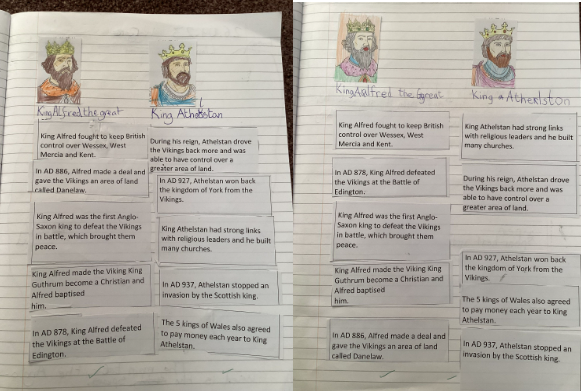 King Alfred the great
King Alfred fought to keep British
control over Wessex, West
Mercia and Kent.
In AD 886, Alfred made a deal and
gave the Vikings an area of land
called Danelaw.
King Alfred was the first Anglo-
Saxon king to defeat the Vikings
in battle, which brought them
peace.
King Alfred made the Viking King
Guthrum become a Christian and
Alfred baptised
him.
In AD 878, King Alfred defeated
the Vikings at the Battle of
Edington.
King Athelstan
During his reign, Athelstan drove
the Vikings back more and was
able to have control over a
greater area of land.
In AD 927, Athelstan won back
the kingdom of York from the
Vikings.
King Athelstan had strong links
with religious leaders and he built
many churches.
In AD 937, Athelstan stopped an
invasion by the Scottish king.
The 5 kings of Wales also agreed
to pay money each year to King
Athelstan.
King Alfred the great
King Alfred fought to keep British
control over Wessex, West
Mercia and Kent.
In AD 878, King Alfred defeated
the Vikings at the Battle of
Edington.
King Alfred was the first Anglo-
Saxon king to defeat the Vikings
in battle, which brought them
peace.
King Alfred made the Viking King
Guthrum become a Christian and
Alfred baptised
him.
In AD 886, Alfred made a deal and
gave the Vikings an area of land
called Danelaw.
King Athelston
King Athelstan had strong links
with religious leaders and he built
many churches.
During his reign, Athelstan drove
the Vikings back more and was
able to have control over a
greater area of land.
In AD 927, Athelstan won back
the kingdom of York from the
Vikings.
The 5 kings of Wales also agreed
to pay money each year to King
Athelstan.
In AD 937, Athelstan stopped an
invasion by the Scottish king.